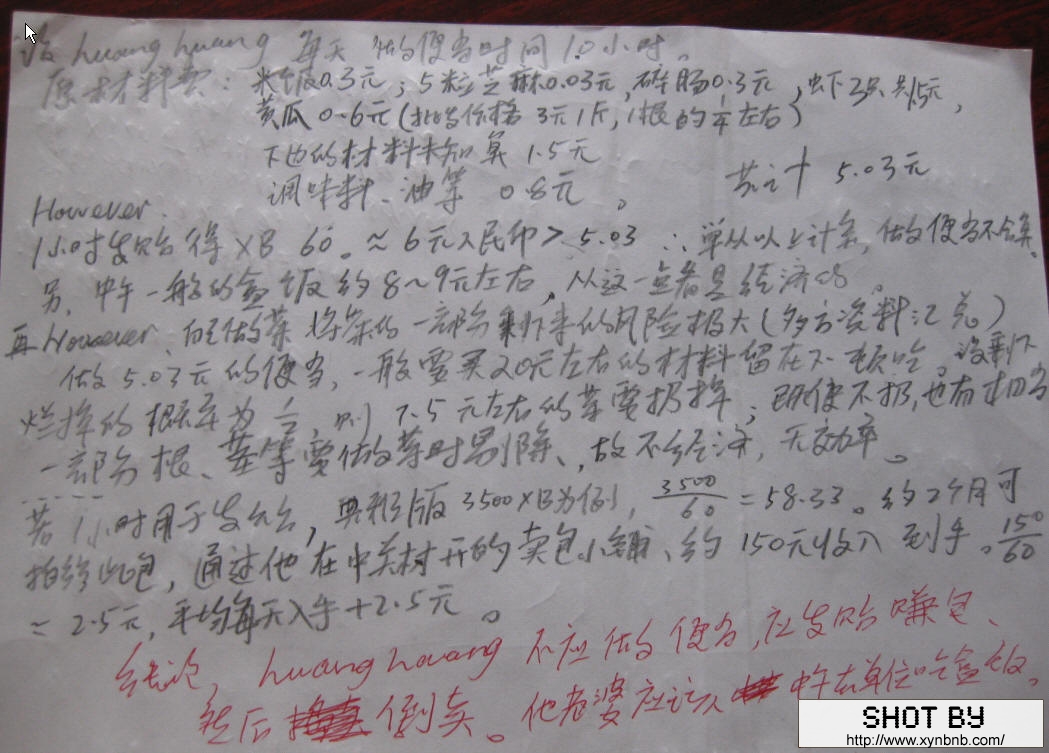 设 huang huang 每天做便当时间 1.0 小时。
原材料费: 米饭0.3元; 5粒芝麻0.03元, 碎肠0.3元, 虾3只共1.5元,
黄瓜 0.6元(批发价格 3元1斤, 1根的1/4左右)
下边的材料未知 算 1.5元
调味料、油等 0.8元。 共计 5.03元
However.
1小时发贴得XB 60。≈6元人民币 > 5.03 ∴单从以上计算, 做便当不合算.
另, 中午一般的盒饭约8~9元左右, 从这一点看是经济的。
再However、自己做菜 将菜的一部分剩下来的风险极大(多方资料汇总)
做 5.03元的便当, 一般需买20元左右的材料留在下顿吃。没剩下
烂掉的概率为 1/2, 则 7.5元左右的菜要扔掉; 即使不扔, 也有相当
一部分根、茎等要做菜时剔除、故不经济, 无效率。
若1小时用于发贴, 典形版 3500XB为例, 3500/60 = 58.33。约2个月可
拍给此包, 通过他在中关村开的卖包小铺、约 150元收入到手。150/60
= 2.5元, 平均每天入手+2.5元。
结论, huang huang 不应做便当, 应发贴赚包、
然后 倒卖。他老婆应该 中午在单位吃盒饭。
SHOT BY
http://www.xynbnb.com/